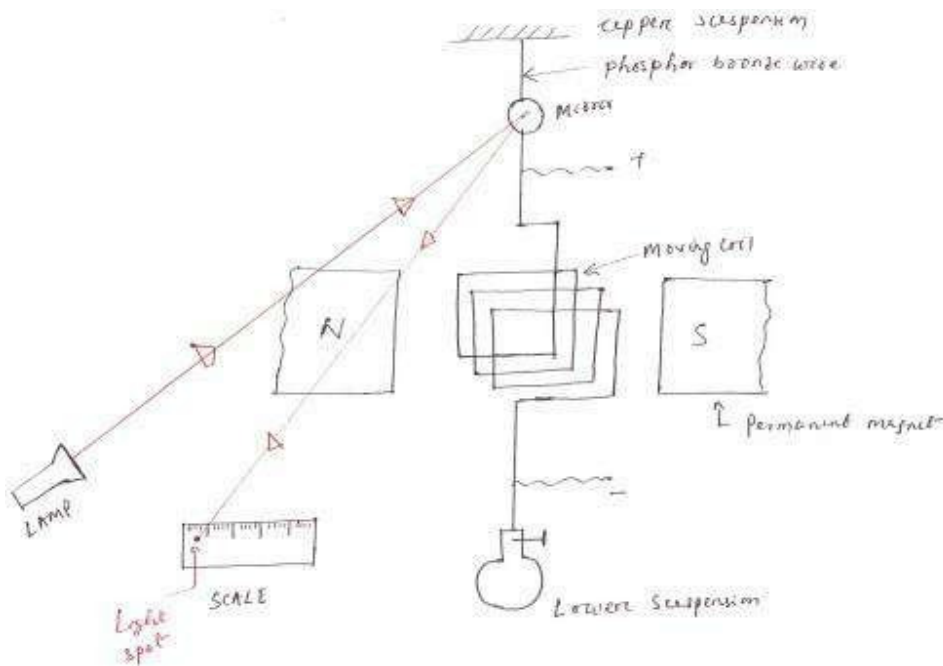 upper suspension
phosphor bronze wire
Mirror
+
Moving coil
N
S
permanint magnet
-
LAMP
SCALE
Light
spot
Lower suspension